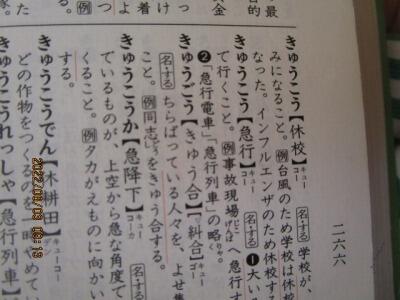 二六六
きゅうこう【休校】キューコー 名・する 学校が、
みになること。例台風のため学校は休
なった。インフルエンザのため休校する
きゅうこう【急行】キューコー 名・する ❶大い
で行くこと。例事故現場げんばへ急行す
❷「急行電車」「急行列車」の略りゃく。
きゅうごう【きゅう合】【糾合】キューゴー
名・する ちらばっている人々を、よせ集
こと。例同志どうしをきゅう合する。
きゅうこうか【急降下】キューコーカ 名・する
ているものが、上空から急な角度で
くること。例タカがえものに向かい
する。
きゅうこうでん【休耕田】キューコーデン
どの作物をつくるのを一時やめてい
きゅうこうれっしゃ【急行列車】
2022/08/03 03:13